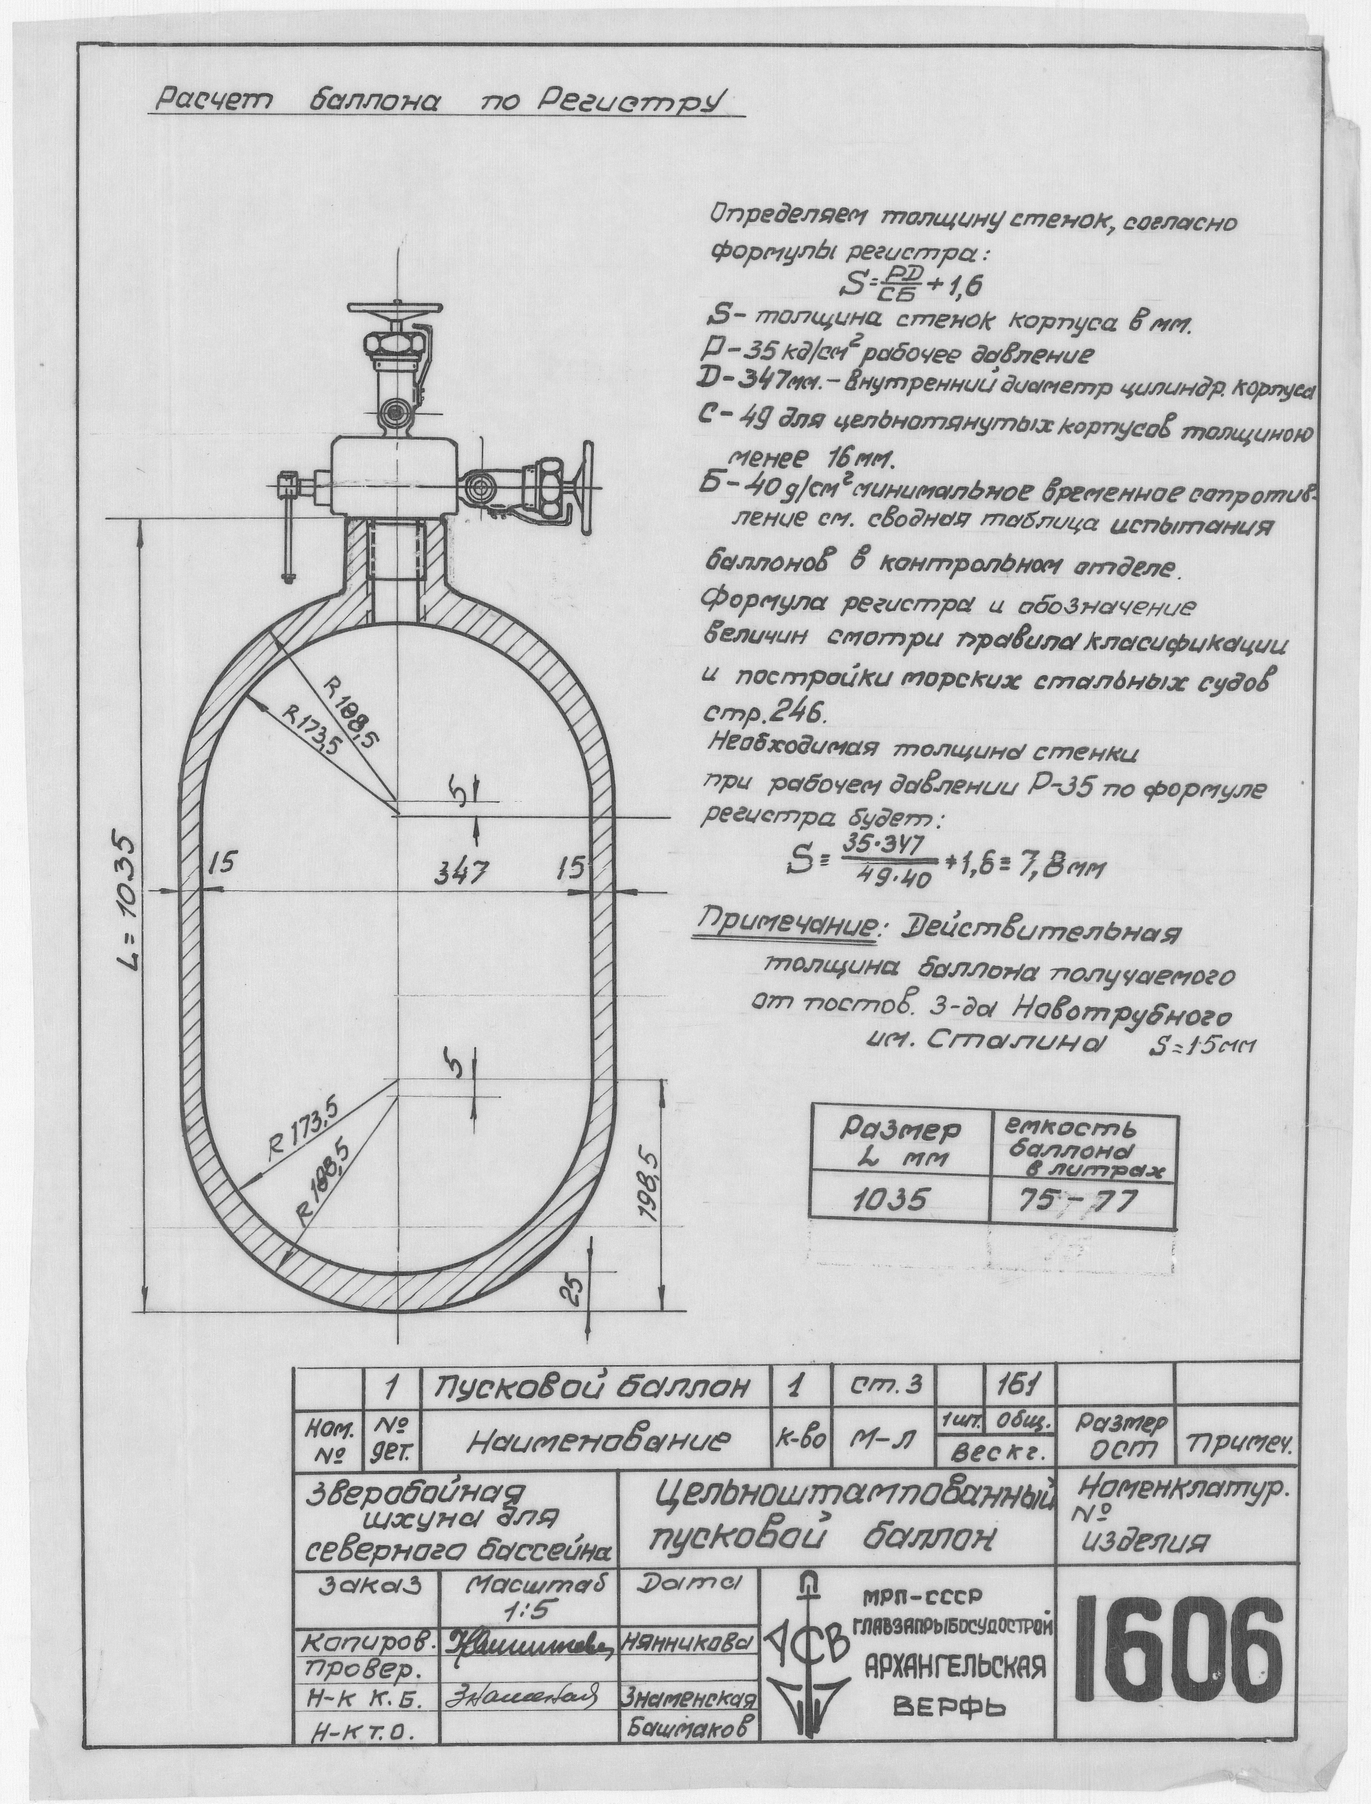 Расчет баллона по Регистру
Определяем толщину стенок, согласно
формулы регистра:
S = PD/СБ + 1,6
S - толщина стенок корпуса в мм.
P - 35 кд/см² рабочее давление
D - 347 мм. - внутренний диаметр цилиндр. корпуса
С - 49 для цельнотянутых корпусов толщиною
менее 16 мм.
Б - 40 д/см² минимальное временное сопротив-
ление см. сводная таблица испытания
баллонов в контрольном отделе.
Формула регистра и обозначение
величин смотри правила класификации
и постройки морских стальных судов
стр. 246.
Необходимая толщина стенки
при рабочем давлении P-35 по формуле
регистра будет:
S = 35·347/49·40 + 1,6 = 7,8 мм
Примечание: Действительная
толщина баллона получаемого
от постов. З-да Новотрубного
им. Сталина S=15мм
R 188,5
R 173,5
5
15
347
15
L=1035
5
R 173,5
R 188,5
198,5
25
Размер L мм
емкость баллона в литрах
1035
75 - 77
1 Пусковой баллон 1 ст. 3 161
Ном. №
№ дет.
Наименование
к-во
М-л
1 шт. Общ.
Вес кг.
Размер ОСТ
Примеч.
Зверобойная
шхуна для
северного бассейна
Цельноштампованный
пусковой баллон
Номенклатур.
№
изделия
Заказ
Масштаб
1:5
Дата
Копиров.
Нянникова
Провер.
Н-к К.Б.
Знаменская
Н-к Т.О.
Башмаков
АСВ
МРП-СССР
ГЛАВЗАПРЫБОСУДОСТРОЙ
АРХАНГЕЛЬСКАЯ
ВЕРФЬ
1606